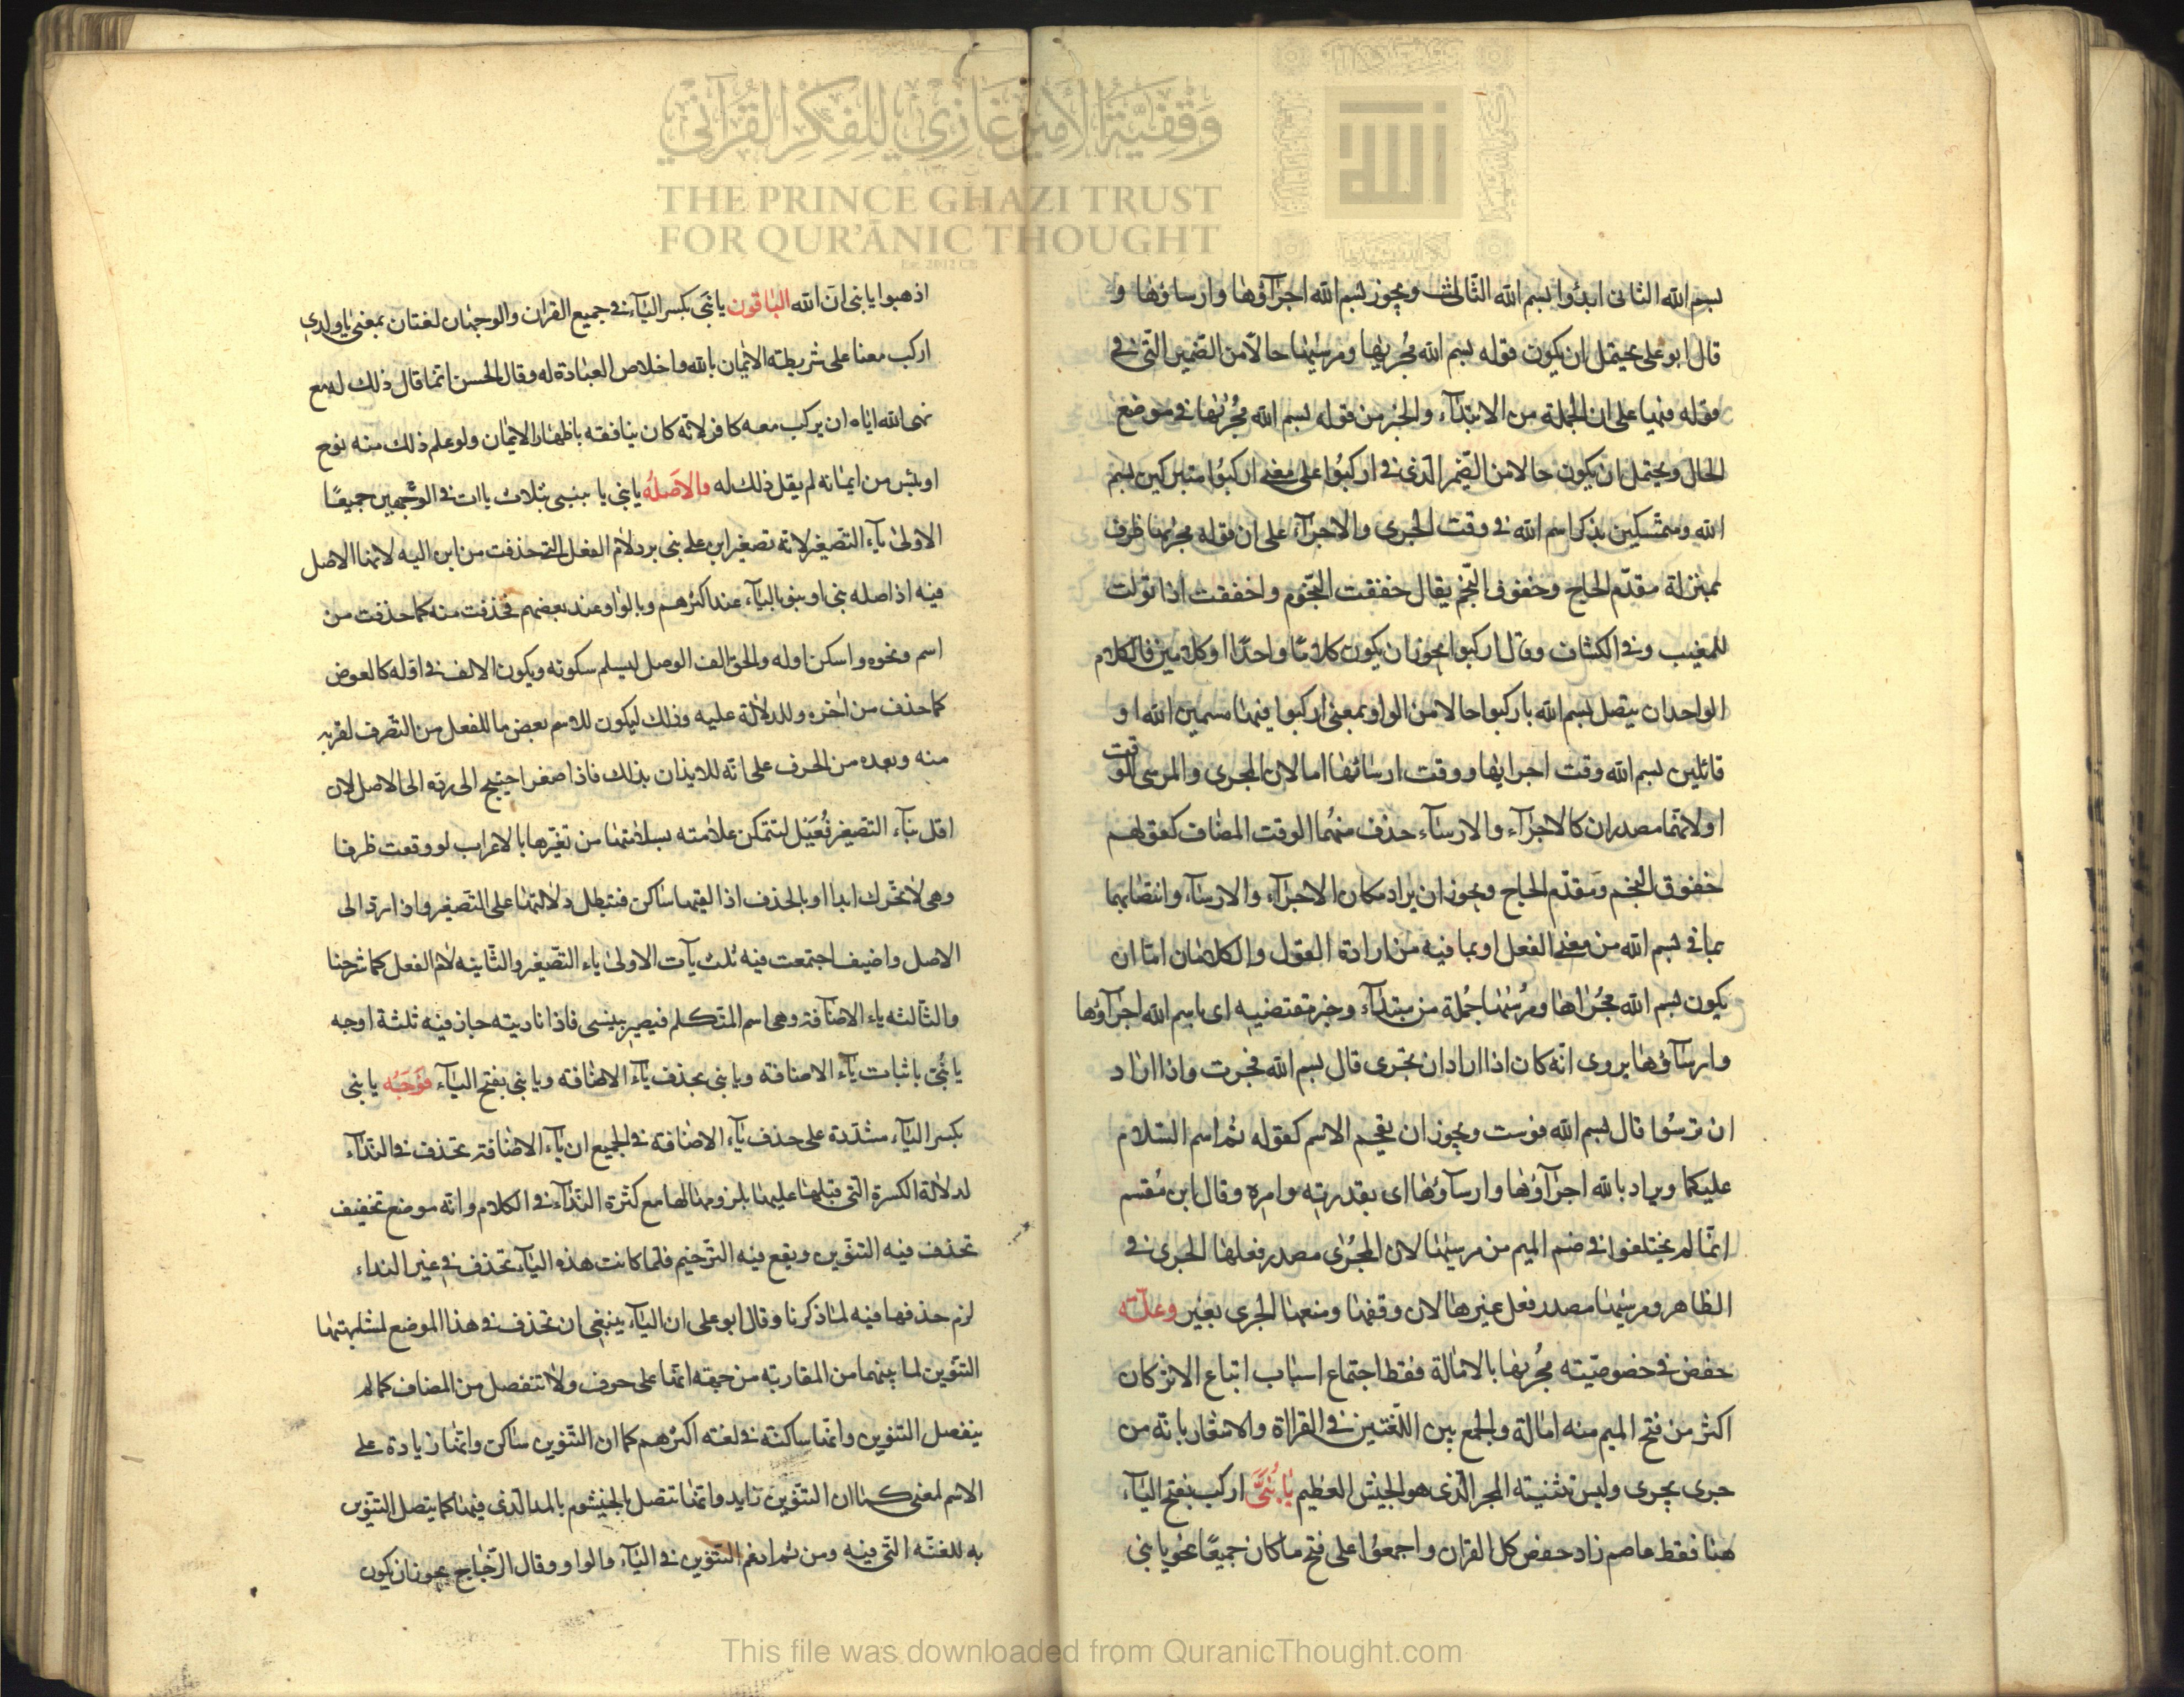 وقفية الأمير غازي للفكر القرآني
THE PRINCE GHAZI TRUST
FOR QUR'ĀNIC THOUGHT
بسم الله الثانى ابدؤا بسم الله الثالث ويجوز بسم الله اجرآؤها وارساؤها و
قال ابو على يحتمل ان يكون قوله بسم الله مجريها ومرسيها حالا من الضمير التى فى
قوله فيها على ان الجملة من الابتدآء والخبر من قوله بسم الله مجريها فى موضع
الحال ويحتمل ان يكون حالا من الضمير الذى فى اركبوا على معنى اركبوا متبركين بسم
الله ومتمسكين بذكر اسم الله فى وقت الجرى والاجرآء على ان قوله مجريها ظرف
بمنزلة مقدم الحاج وخفوق النجم يقال خفقت النجوم واخفقت اذا تولت
للمغيب وفى الكشاف وقال اركبوا يجوز ان يكون كلاما واحدا او كلامين فالكلام
الواحد ان يتصل بسم الله باركبوا حالا من الواو بمعنى اركبوا فيها مسمين الله او
قائلين بسم الله وقت اجرايها ووقت ارسائها اما لان المجرى والمرسى للوقت
او لانهما مصدران كالاجرآء والارسآء حذف منهما الوقت المضاف كقولهم
خفوق النجم ومقدم الحاج ويجوز ان يراد مكان الاجرآء والارسآء وانتصابهما
بما فى بسم الله من معنى الفعل او بما فيه من ارادة القول والكلامان اما ان
يكون بسم الله مجراها ومرسيها جملة من مبتدآء وخبر مقتضيه اى باسم الله اجرآؤها
وارسآؤها يروى انه كان اذا اراد ان تجرى قال بسم الله فجرت واذا اراد
ان ترسوا قال بسم الله فرست ويجوز ان يقحم الاسم كقوله ثم اسم السلام
عليكما ويراد بالله اجرآؤها وارسآؤها اى بقدرته وامره وقال ابن مقسم
انما لم يختلفوا فى ضم الميم من مرسيها لان المجرى مصدر فعلها الجرى فى
الظاهر ومرسيها مصدر فعل غيرها لان وقفها ومنعها الجرى بغير وعلته
حفص فى خصوصيته مجريها بالامالة فقط اجتماع اسباب اتباع الاثر كان
اكثر من فتح الميم منه امالة والجمع بين اللغتين فى القراة والاشعار بانه من
جرى يجرى وليس تثنية المجر الذى هو الجيش العظيم يا بنى اركب بفتح اليآء
هنا فقط عاصم زاد حفص كل القران واجمعوا على فتح ما كان جميعا نحو يا بنى
اذهبوا يا بنى ان الله الباقون يا بنى بكسر اليآء فى جميع القران والوجهان لغتان بمعنى يا ولدى
اركب معنا على شريطة الايمان بالله واخلاص العبادة له وقال الحسن انما قال ذلك له مع
نهى الله اياه ان يركب معه كافر لانه كان ينافقه باظهار الايمان ولو علم ذلك منه نوح
او يئس من ايمانه لم يقل ذلك له والاصل يا بنى يا بنيى بثلاث ياات فى الوجهين جميعا
الاولى يآء التصغير لانه تصغير ابن على بنى برد لام الفعل التى حذفت من ابن اليه لانها الاصل
فيه اذ اصله بنى او بنو باليآء عند اكثرهم وبالواو عند بعضهم فحذفت منه كما حذفت من
اسم ونحوه واسكن اوله والحق الف الوصل ليسلم سكونه ويكون الالف فى اوله كالعوض
كما حذف من اخره وللدلالة عليه وذلك ليكون للاسم بعض ما للفعل من التصرف لقربه
منه وبعده من الحرف على انه للايذان بذلك فاذا صغر احتيج الى رده الى الاصل لان
اقل بنآء التصغير فعيل لتتمكن علامته بسلامتها من تغيرها بالاعراب لو وقعت طرفا
وهى لا تحرك ابدا او بالحذف اذا لقيها ساكن فتبطل دلالتها على التصغير واذا رد الى
الاصل واضيف اجتمعت فيه ثلث يآت الاولى ياء التصغير والثانيه لام الفعل كما شرحنا
والثالثه ياء الاضافة وهى اسم المتكلم فيصير بنيى فاذا ناديته جاز فيه ثلثة اوجه
يا بنى باثبات يآء الاضافة ويا بنى بحذف يآء الاضافة ويا بنى بفتح اليآء فوجه يا بنى
بكسر اليآء مشددة على حذف يآء الاضافة فى الجميع ان يآء الاضافة تحذف فى الندآء
لدلالة الكسرة التى قبلها عليها بلزومها لها مع كثرة الندآء فى الكلام وانه موضع تخفيف
تحذف فيه التنوين ويقع فيه الترخيم فلما كانت هذه اليآء تحذف فى غير النداء
لزم حذفها فيه لما ذكرنا وقال ابو على ان اليآء ينبغى ان تحذف فى هذا الموضع لمشابهتها
التنوين لما بينهما من المقاربة من جهة انها على حرف ولا تنفصل من المضاف كما لم
ينفصل التنوين وانها ساكنة فى لغة اكثرهم كما ان التنوين ساكن وانها زيادة على
الاسم لمعنى كما ان التنوين زايد وانها تتصل بالخيشوم بالمد الذى فيها كما يتصل التنوين
به للغنة التى فيه ومن ثم ادغم التنوين فى اليآء والواو وقال الزجاج يجوز ان يكون
This file was downloaded from QuranicThought.com